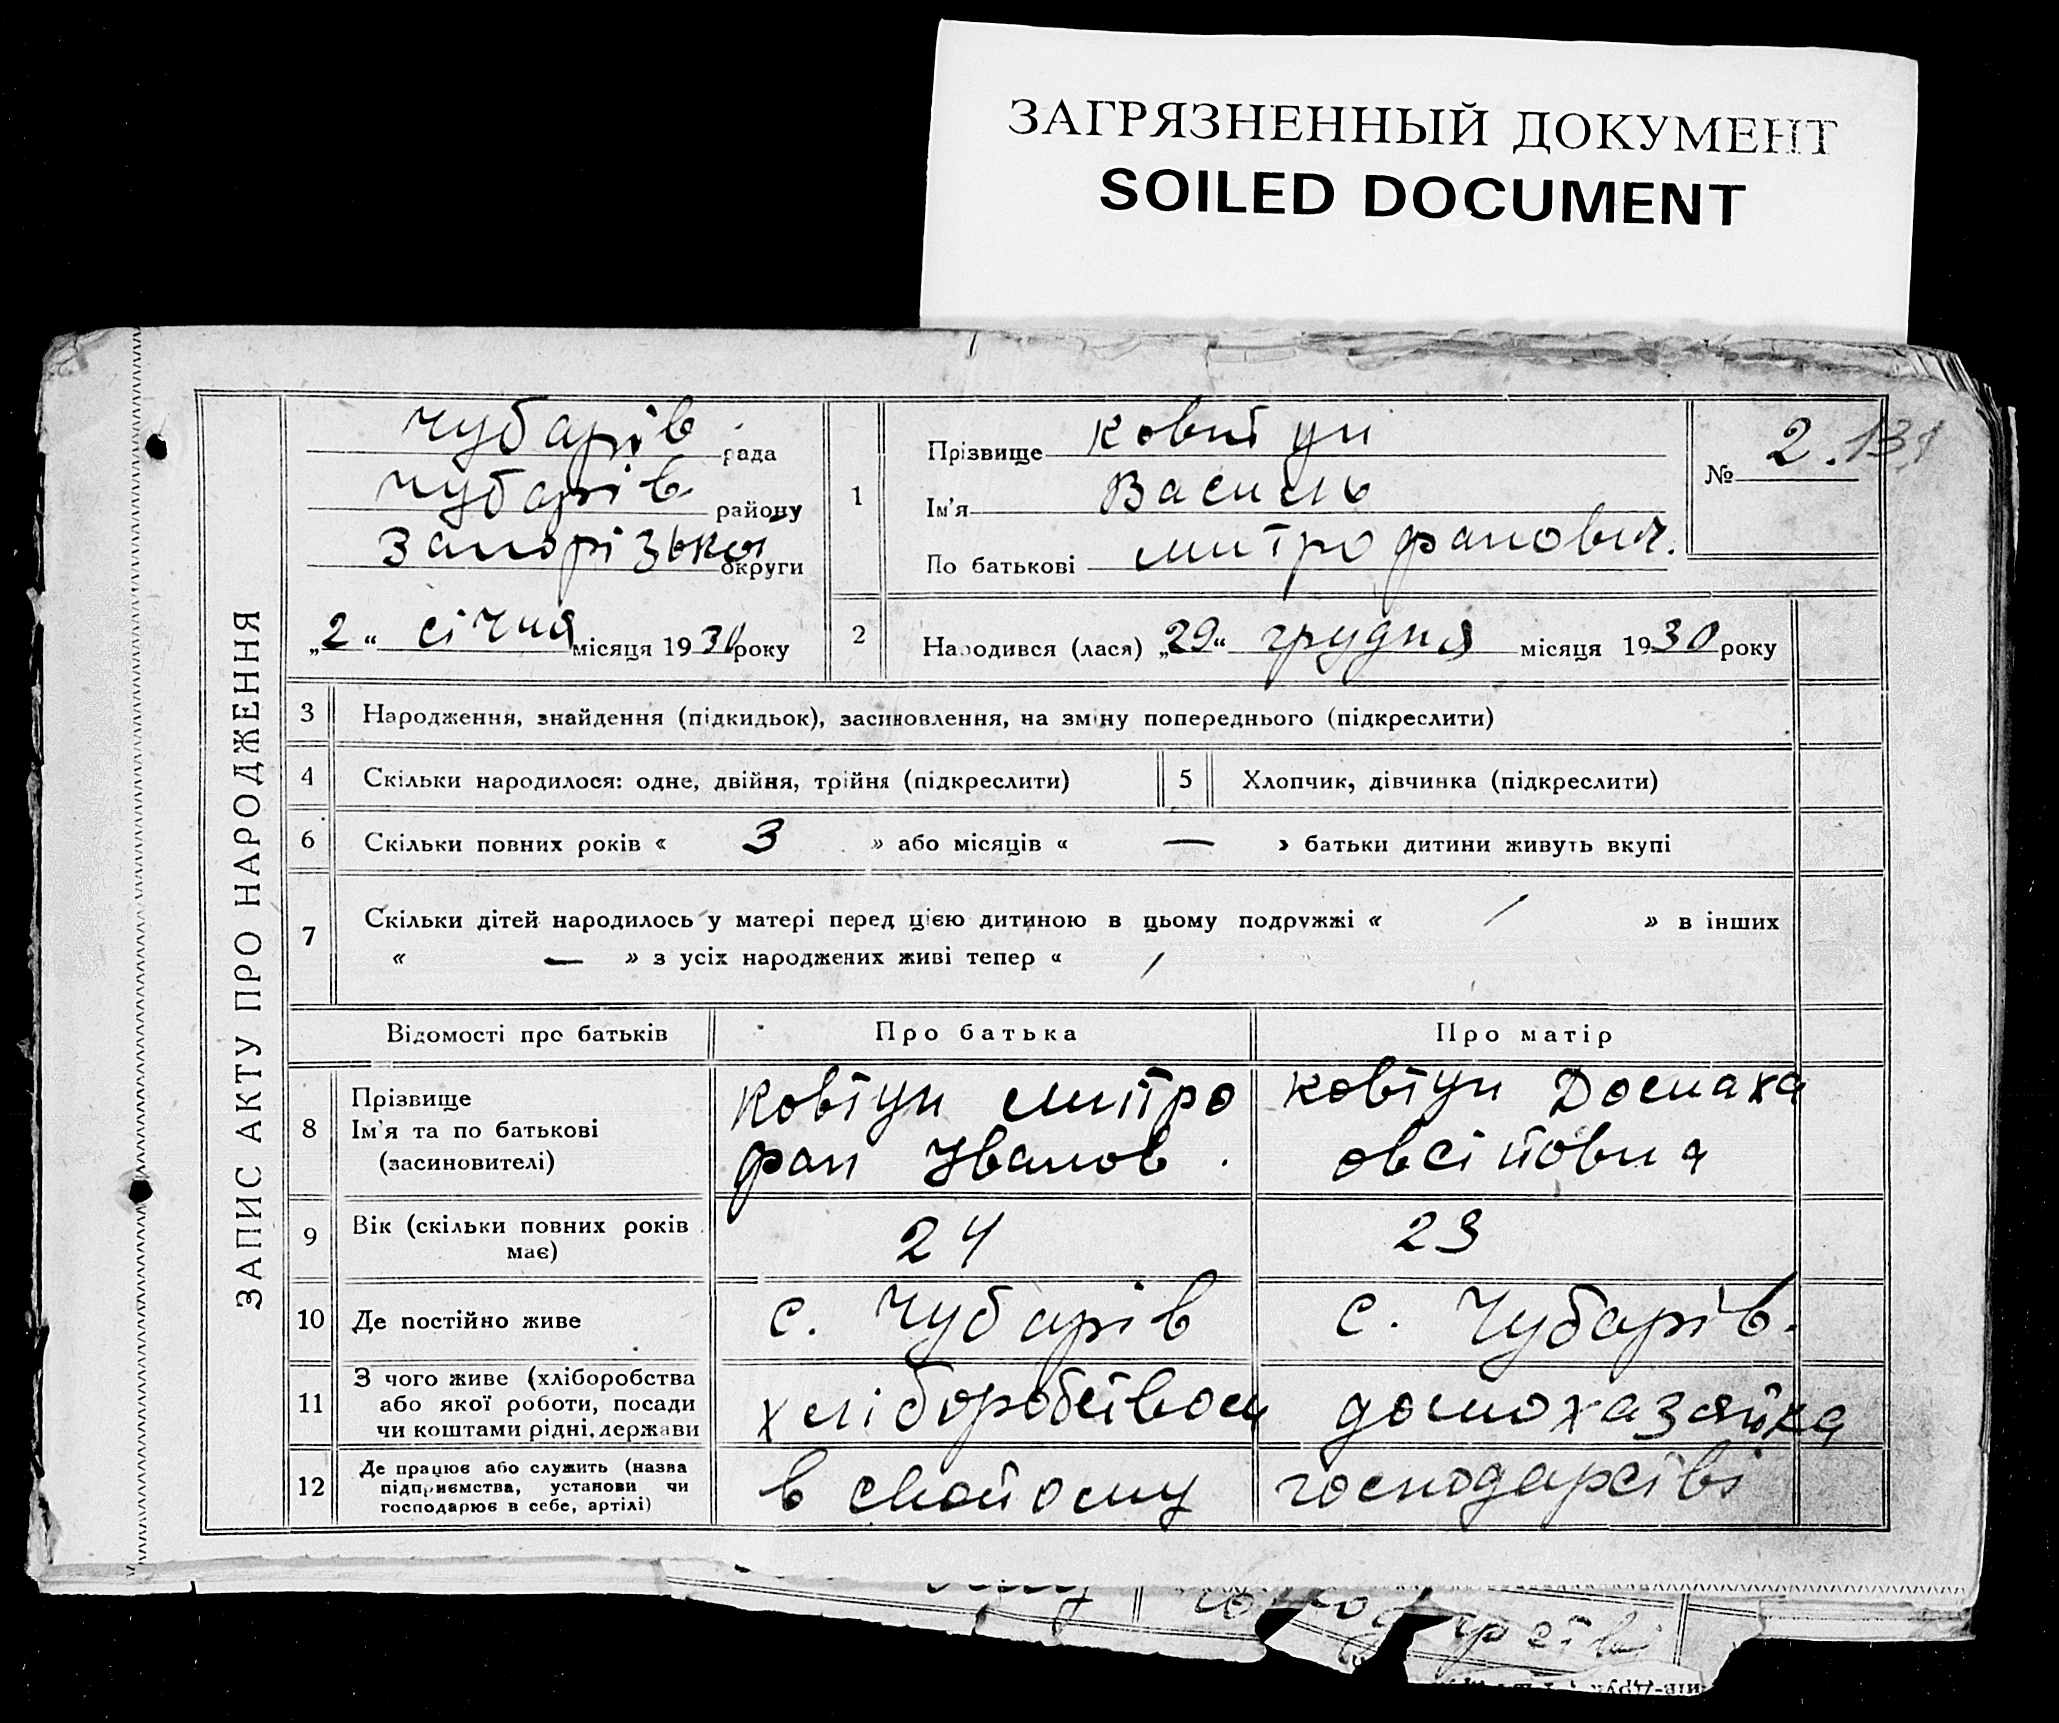 ЗАГРЯЗНЕННЫЙ ДОКУМЕНТ
SOILED DOCUMENT
ЗАПИС АКТУ ПРО НАРОДЖЕННЯ
Чубарів рада
Чубарів району
Запорізької округи
„2“ січня місяця 1931 року
1
Прізвище Ковтун
Ім'я Василь
По батькові Митрофанович.
№ 2. 131
2 Народився (лася) „29“ грудня місяця 1930 року
3 Народження, знайдення (підкидьок), засиновлення, на зміну попереднього (підкреслити)
4 Скільки народилося: одне, двійня, трійня (підкреслити) 5 Хлопчик, дівчинка (підкреслити)
6 Скільки повних років « 3 » або місяців « — » батьки дитини живуть вкупі
7 Скільки дітей народилось у матері перед цією дитиною в цьому подружжі « / » в інших
« — » з усіх народжених живі тепер « /
Відомості про батьків Про батька Про матір
8 Прізвище
Ім'я та по батькові
(засиновителі)
Ковтун Митро
фан Иванов.
Ковтун Домаха
Овсійовна
9 Вік (скільки повних років
має)
24 23
10 Де постійно живе с. Чубарів с. Чубарів.
11 З чого живе (хліборобства
або якої роботи, посади
чи коштами рідні, держави
хліборобством домохазяйка
12 Де працює або служить (назва
підприємства, установи чи
господарює в себе, артілі)
в свойому господарстві